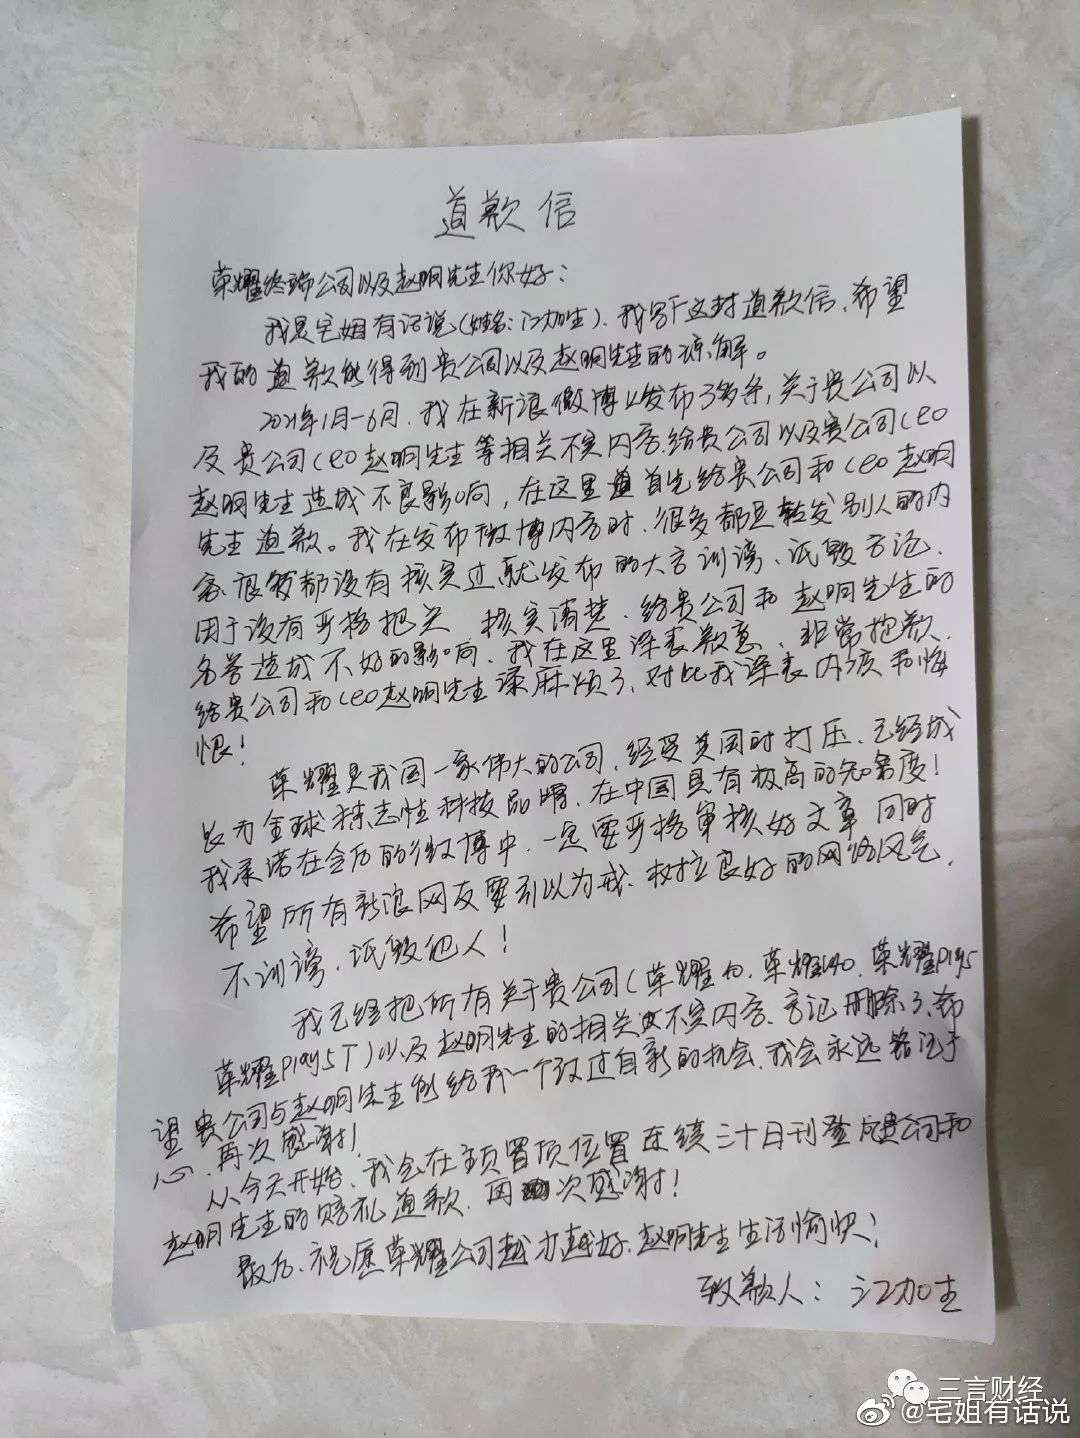 道歉信
荣耀终端公司以及赵明先生你好：
我是宅姐有话说(姓名：江加生)．我写下这封道歉信．希望
我的道歉能得到贵公司以及赵明先生的谅解。
2021年1月-6月．我在新浪微博上发布了多条，关于贵公司以
及贵公司ceo赵明先生等相关不实内容．给贵公司以及贵公司ceo
赵明先生造成不良影响，在这里首先给贵公司和ceo赵明
先生道歉。我在发布微博内容时．很多都是转发别人的内
容．很多都没有核实过．就发布的大言训谤、诋毁言论．
由于没有严格把关 核实清楚．给贵公司和赵明先生的
名誉造成不好的影响．我在这里深表歉意、非常抱歉．
给贵公司和ceo赵明先生添麻烦了．对此我深表内疚和悔
恨！
荣耀是我国一家伟大的公司．经受美国的打压．已经成
长为全球标志性科技品牌．在中国具有极高的知名度！
我承诺在今后的微博中．一定要严格审核好文章 同时
希望所有新浪网友要引以为戒．树立良好的网络风气．
不训谤．诋毁他人！
我已经把所有关于贵公司(荣耀40．荣耀V40．荣耀Play5
荣耀Play5T)以及赵明先生的相关不实内容．言论删除了．希
望贵公司与赵明先生能给我一个改过自新的机会．我会永远铭记于
心．再次感谢！
从今天开始．我会在主页置顶位置连续三十日刊登贵公司和
赵明先生的赔礼道歉．再次感谢！
最后．祝愿荣耀公司越办越好．赵明先生生活愉快！
致歉人：江加生
三言财经
@宅姐有话说